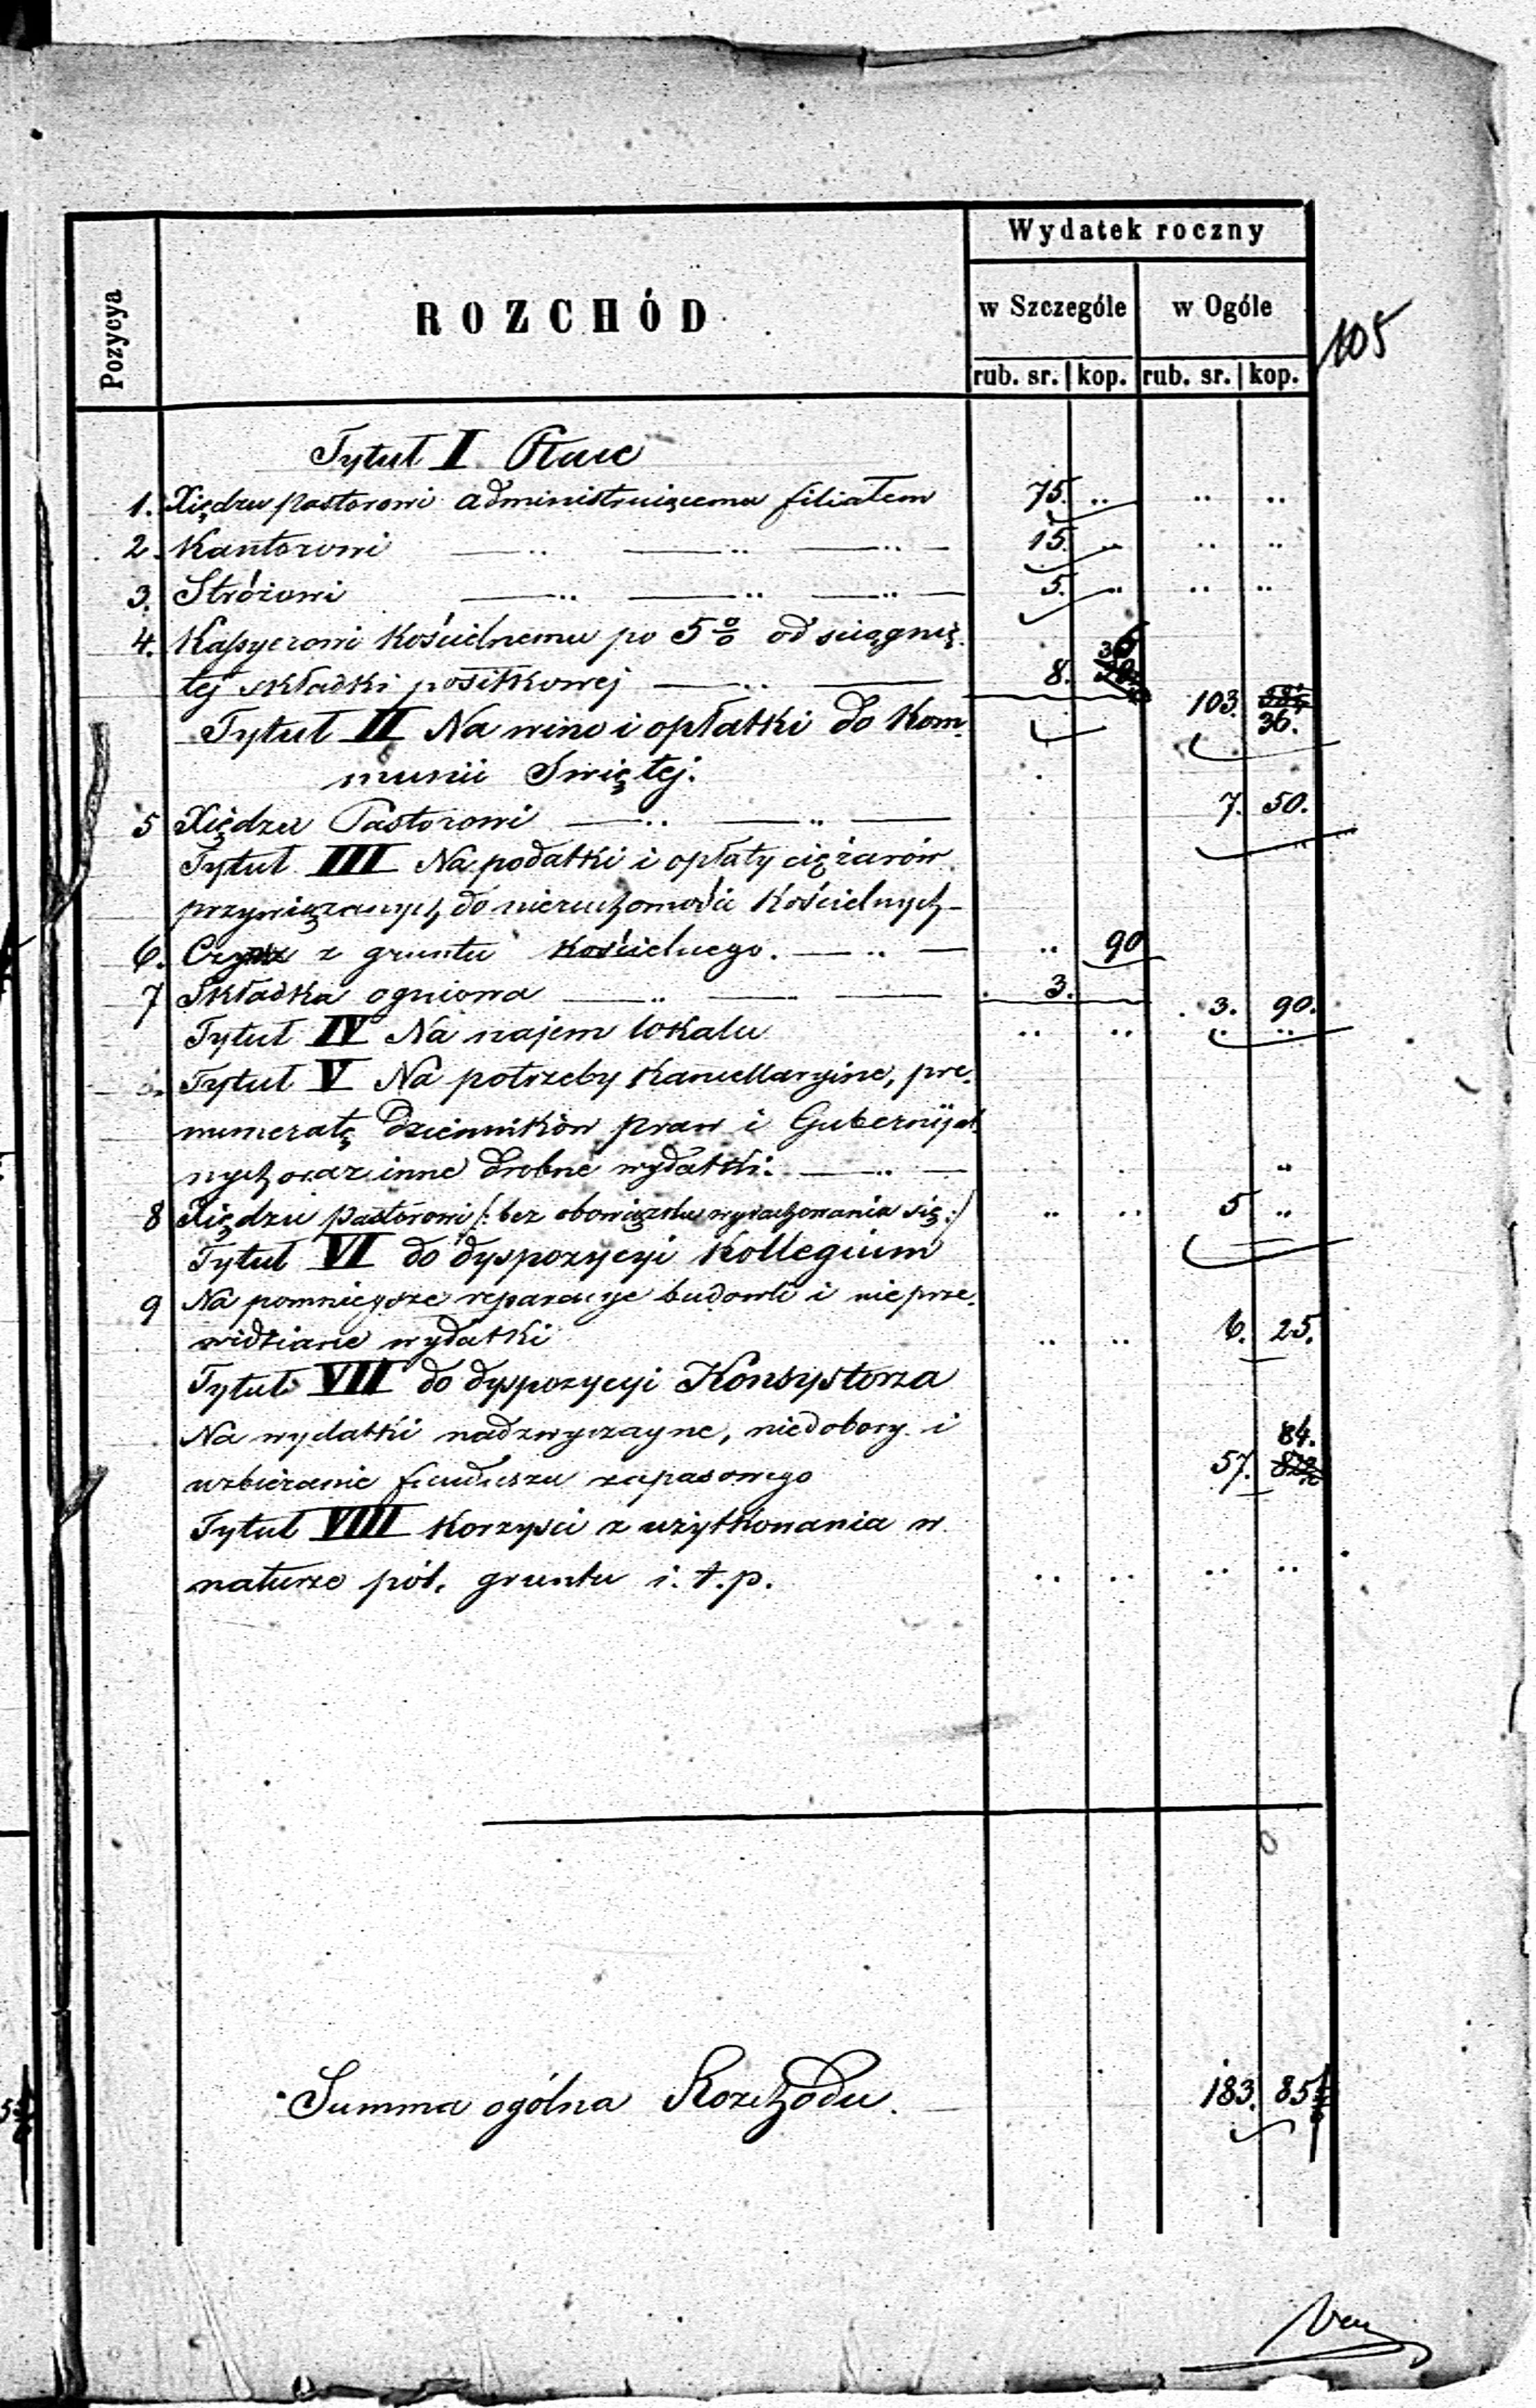 Wydatek roczny
Pozycya
ROZCHÓD
w Szczególe w Ogóle
105
rub. sr. kop. rub. sr. kop.
Tytuł I Płace
1. Xiędzu pastorowi administruiącemu filiałem 75. .. .. ..
2. Kantorowi 15. .. .. ..
3. Stróżowi 5. .. .. ..
4. Kassyerowi Kościelnemu po 5% od sciągnię
tej składki posiłkowej 8. 36 103. 36.
Tytuł II Na wino i opłatki do Kom
munii Swiętej.
5 Xiędzu Pastorowi 7. 50.
Tytuł III Na podatki i opłaty ciężarów
przywiązanych do nieruchomości Kościelnych
6. Czynsz z gruntu Kościelnego. .. 90
7 Składka ogniowa 3. 3. 90.
Tytuł IV Na najem lokalu .. .. .. ..
Tytuł V Na potrzeby Kancellaryine, pre.
numeratę Dzienników praw i Gubernijal
nych oraz inne drobne wydatki. ..
8 Xiędzu pastorowi /: bez obowiązku wyrachowania się :/ .. .. 5 ..
Tytuł VI do dyspozycyi Kollegium
9 Na pomnieysze reparacye budowli i nieprze.
widziane wydatki .. .. 6. 25.
Tytuł VII do dyspozycyi Konsystorza
Na wydatki nadzwyczayne, niedobory i 84.
uzbieranie funduszu zapasowego 57.
Tytuł VIII Korzyści z użytkowania w
naturze pól, gruntu i. t. p. .. .. .. ..
Summa ogólna Rozchodu. 183. 85